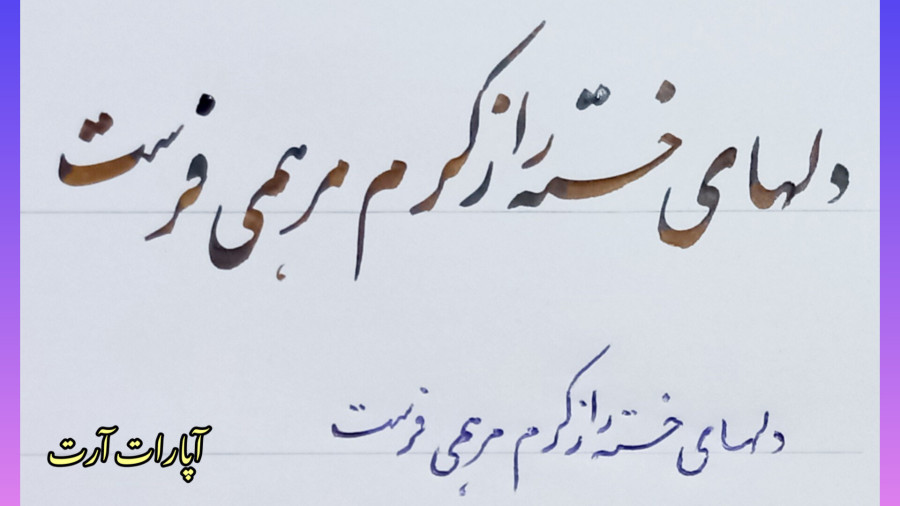 دلهای خسته را از کرم مرهمی فرست
دلهای خسته را از کرم مرهمی فرست
آپارات آرت